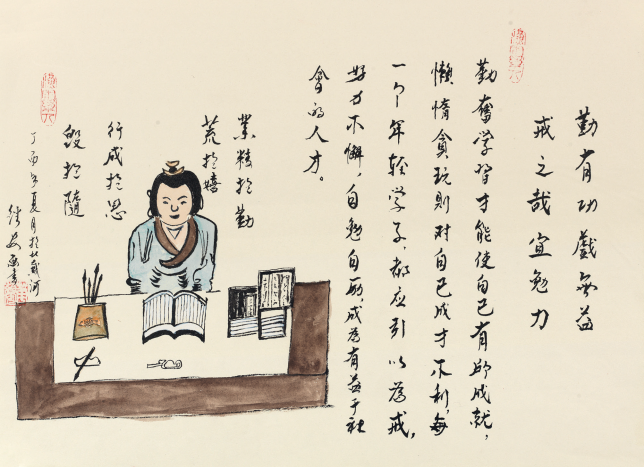 勤有功戲無益
戒之哉宜勉力
勤奮学習才能使自己有所成就，
懒惰貪玩则对自己成才不利，每
一个年輕学子，都应引以為戒，
努力不懈，自勉自励，成為有益于社
會的人才。
業精於勤
荒於嬉
行成於思
毁於隨
丁酉年夏月於北戴河